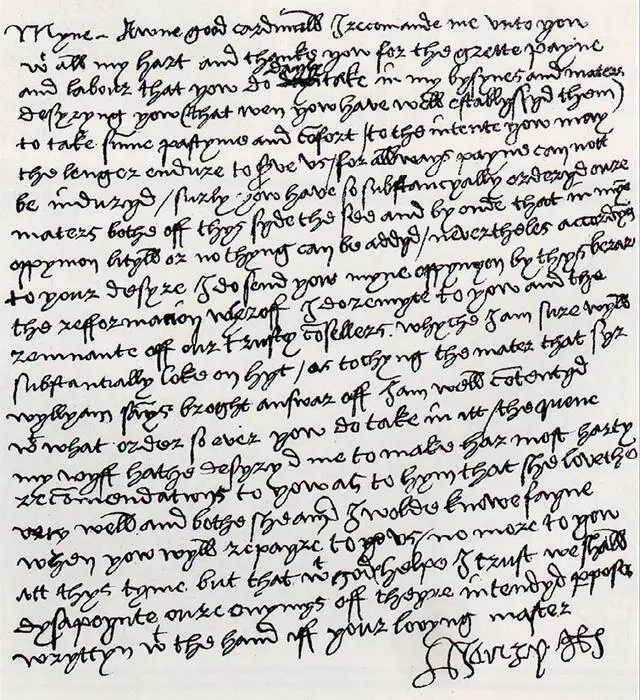 Myne Awne good cardinall I recomande me unto yow
wt all my hart and thanke yow for the grette payne
and labour that yow do dayly take in my bysynes and maters
desyryng yow (that wen yow have well establyssyd them)
to take summe pastyme and cõfort / to the intente yow may
the lenger endure to serve us / for allways payne can nott
be induryd / surly yow have so substancyally orderyd oure
maters bothe off thys syde the see and by onde that in myne
oppynion lityll or no thyng can be addyd / nevertheles accordyng
to your desyre I do send yow myne oppynyon by thys berar
the refformacion wheroff I do remytte to yow and the
remnante off our trusty cõsellers whyche I am sure wyll
substantially loke on hyt / as tochyng the mater that syr
wyllyam sãys broght answar off I am well cõtentyd
wt what order so ever yow do take in itt / the quene
my wyff hathe desyryd me to make har most harty
recõmendations to yow as to hym that she lovethe
very well and bothe she and I wolde knowe fayne
when yow wyll repayre to us / no more to yow
att thys tyme but that wt gods helpe I trust we shall
dysapoynte oure enymys off theyre intendyd purpose
wryttyn wt the hand off your lovyng master
Henry